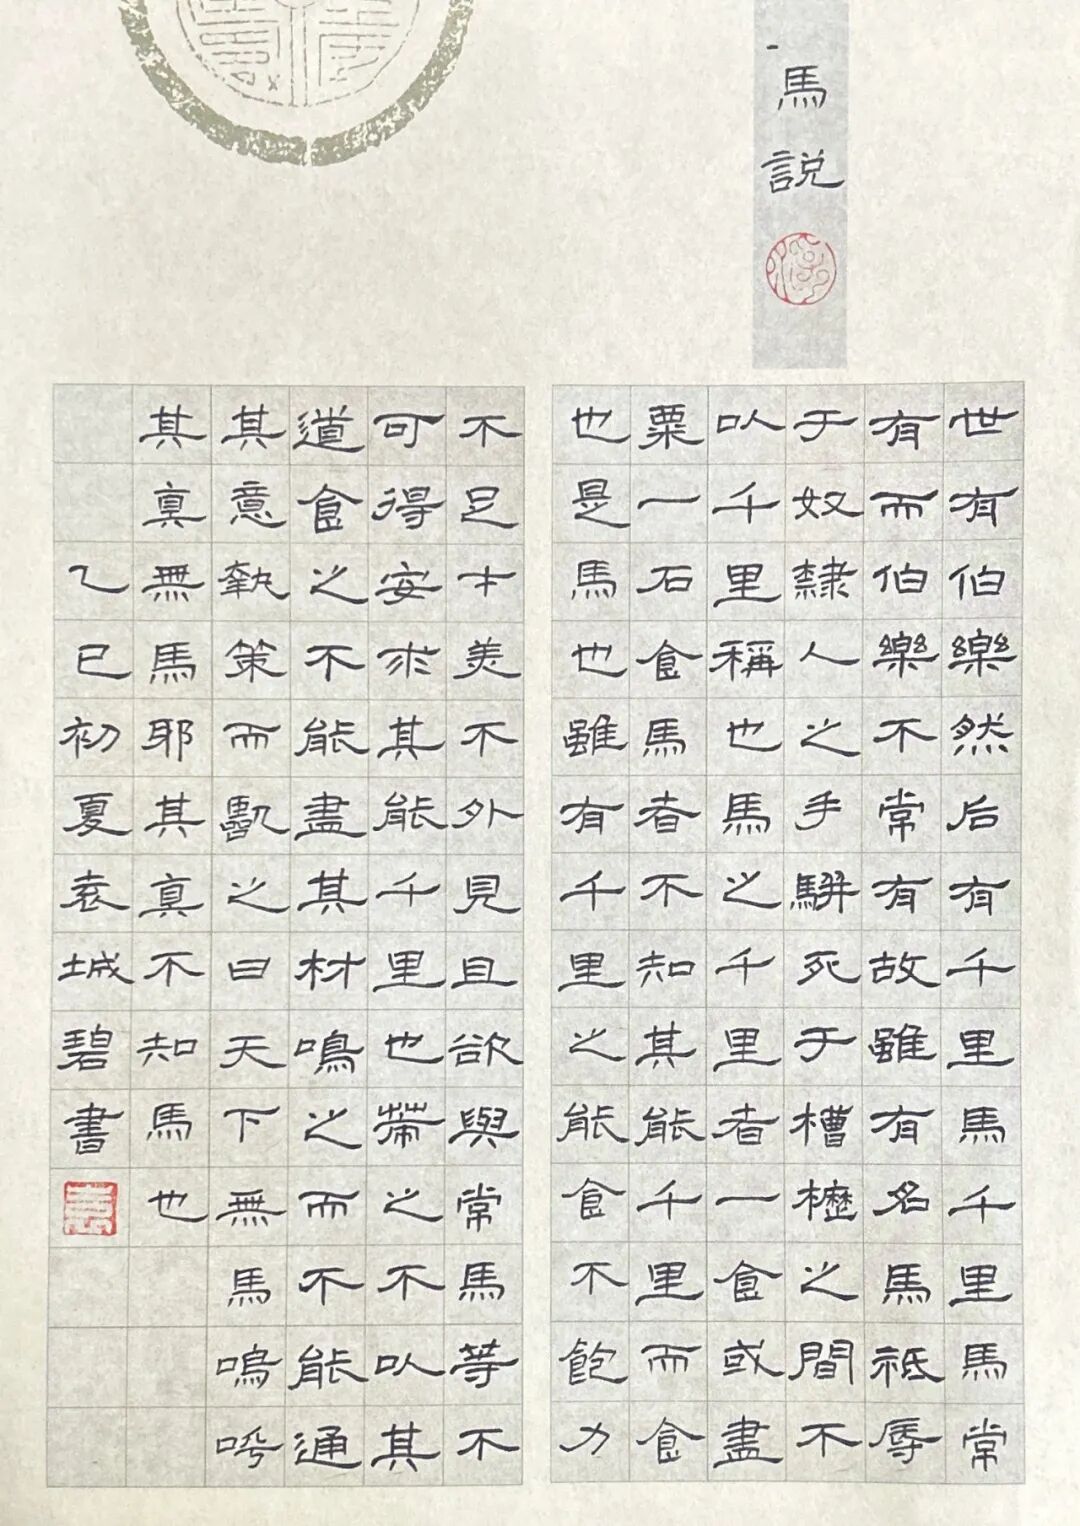 馬説
世有伯樂然后有千里馬千里馬常
有而伯樂不常有故雖有名馬祗辱
于奴隸人之手駢死于槽櫪之間不
以千里稱也馬之千里者一食或盡
粟一石食馬者不知其能千里而食
也是馬也雖有千里之能食不飽力
不足才美不外見且欲與常馬等不
可得安求其能千里也策之不以其
道食之不能盡其材鳴之而不能通
其意執策而臨之曰天下無馬嗚呼
其真無馬耶其真不知馬也
乙巳初夏袁城碧書